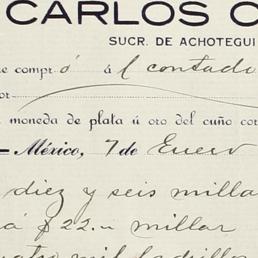 CARLOS C
SUCR. DE ACHOTEGUI
e compró á l contado
or
moneda de plata ú oro del cuño cor
México, 7 de Enero
diez y seis milla
á $ 22.- millar
atro mil ladrillos